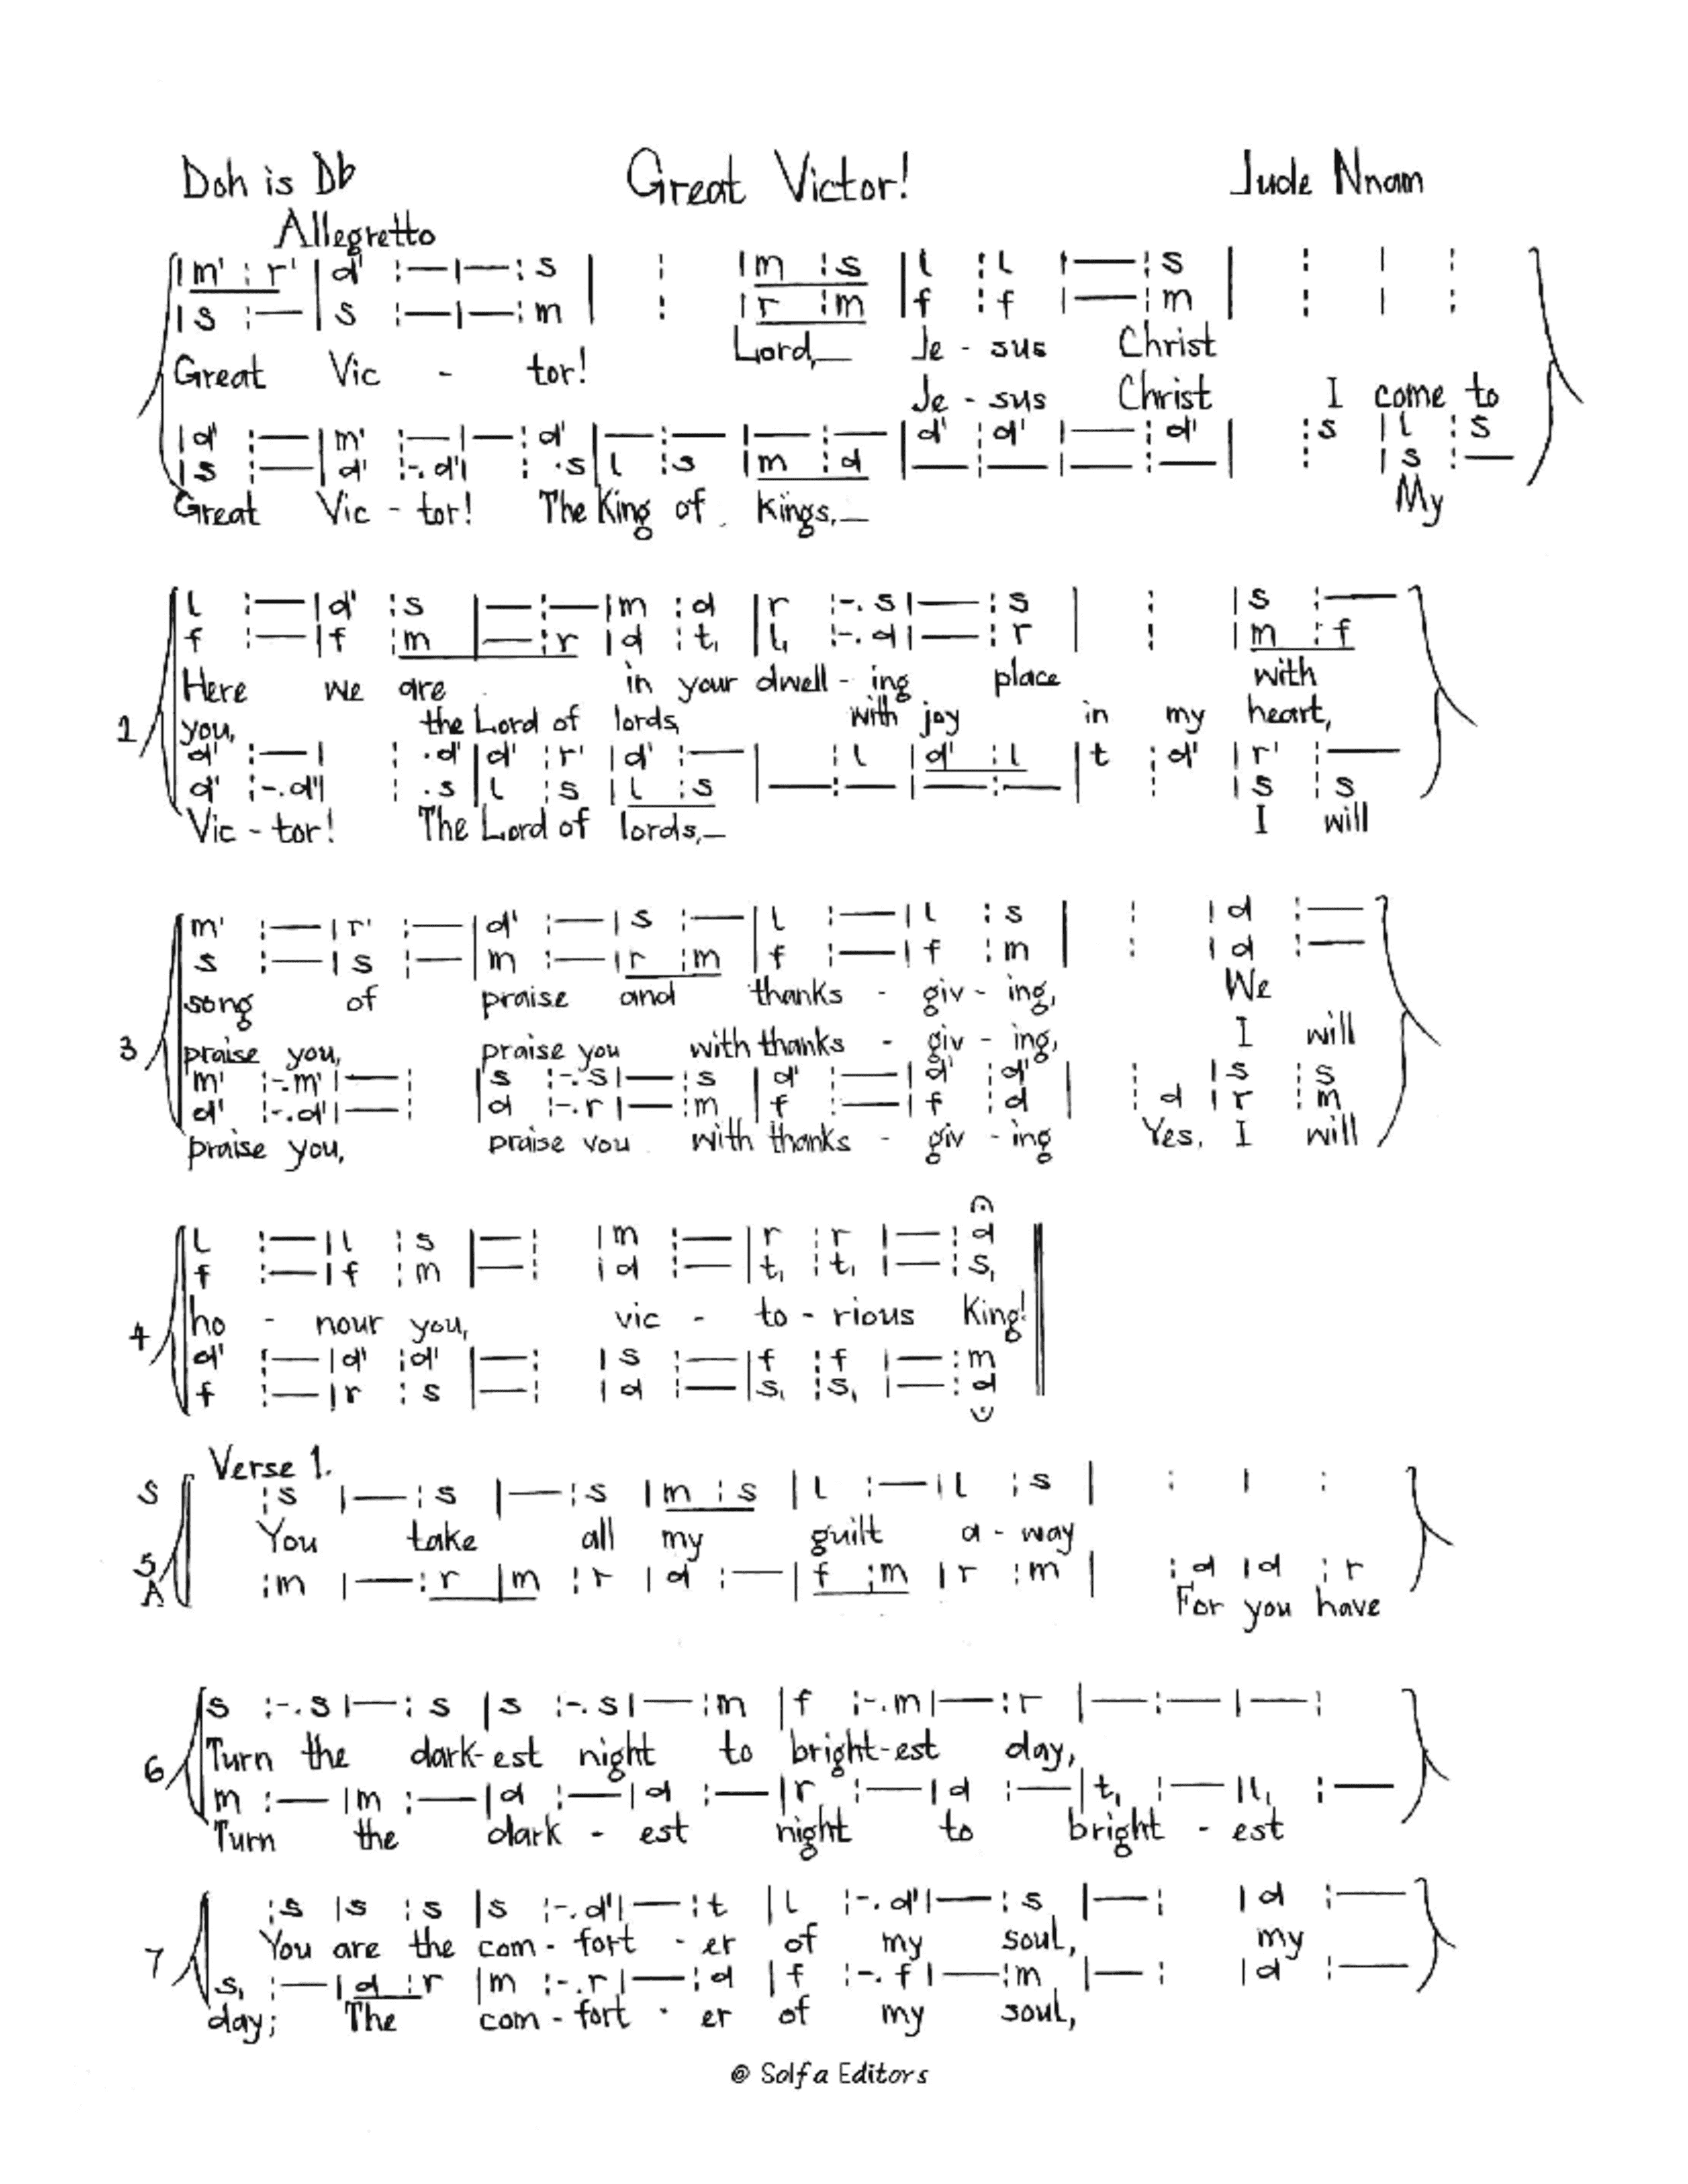 Doh is Db Great Victor! Jude Nnam
Allegretto
|m' : r' | d' :—|—: s | : |m : s | l : l |—: s | : | :
|s :—| s :—|—: m | : |r : m | f : f |—: m | : | :
Lord,— Je - sus Christ
Great Vic - tor!
Je - sus Christ I come to
|d' :—| m' :—|—: d' |—:—|—:—| d' : d' |—: d' | : s | l : s
|s :—| d' :-. d'| : .s | l : s |m : d |—:—|—:—| : | s :—
Great Vic - tor! The King of Kings,— My
l :—| d' : s |—:—| m : d | r :-. s|—: s | : | s :—
f :—| f : m |—: r | d : t, | l, :-. d|—: r | : | m : f
Here we are in your dwell - ing place with
2 you, the Lord of lords, with joy in my heart,
d' :—| : .d' | d' : r' | d' :—|—: l | d' : l | t : d' | r' :—
d' :-. d'| : .s | l : s | l : s |—:—|—:—| : | s : s
Vic - tor! The Lord of lords,— I will
m' :—| r' :—| d' :—| s :—| l :—| l : s | : | d :—
s :—| s :—| m :—| r : m | f :—| f : m | : | d :—
song of praise and thanks - giv - ing, We
3 praise you, praise you with thanks - giv - ing, I will
m' :-. m'|—: | s :-. s|—: s | d' :—| d' : d' | : | s : s
d' :-. d'|—: | d :-. r|—: m | f :—| f : d | : d | r : m
praise you, praise you with thanks - giv - ing Yes, I will
l :—| l : s |—: | m :—| r : r |—: d
f :—| f : m |—: | d :—| t, : t, |—: s,
4 ho - nour you, vic - to - rious King!
d' :—| d' : d' |—: | s :—| f : f |—: m
f :—| r : s |—: | d :—| s, : s, |—: d
Verse 1.
S : s |—: s |—: s | m : s | l :—| l : s | : | :
You take all my guilt a - way
5 A : m |—: r | m : r | d :—| f : m | r : m | : d | d : r
For you have
s :-. s|—: s | s :-. s|—: m | f :-. m|—: r |—:—|—:
6 Turn the dark-est night to bright-est day,
m :—| m :—| d :—| d :—| r :—| d :—| t, :—| l, :—
Turn the dark - est night to bright - est
: s | s : s | s :-. d'|—: t | l :-. d'|—: s |—: | d :—
7 You are the com - fort - er of my soul, my
s, :—| d : r | m :-. r|—: d | f :-. f|—: m |—: | d :—
day; The com - fort - er of my soul,
@ Solfa Editors